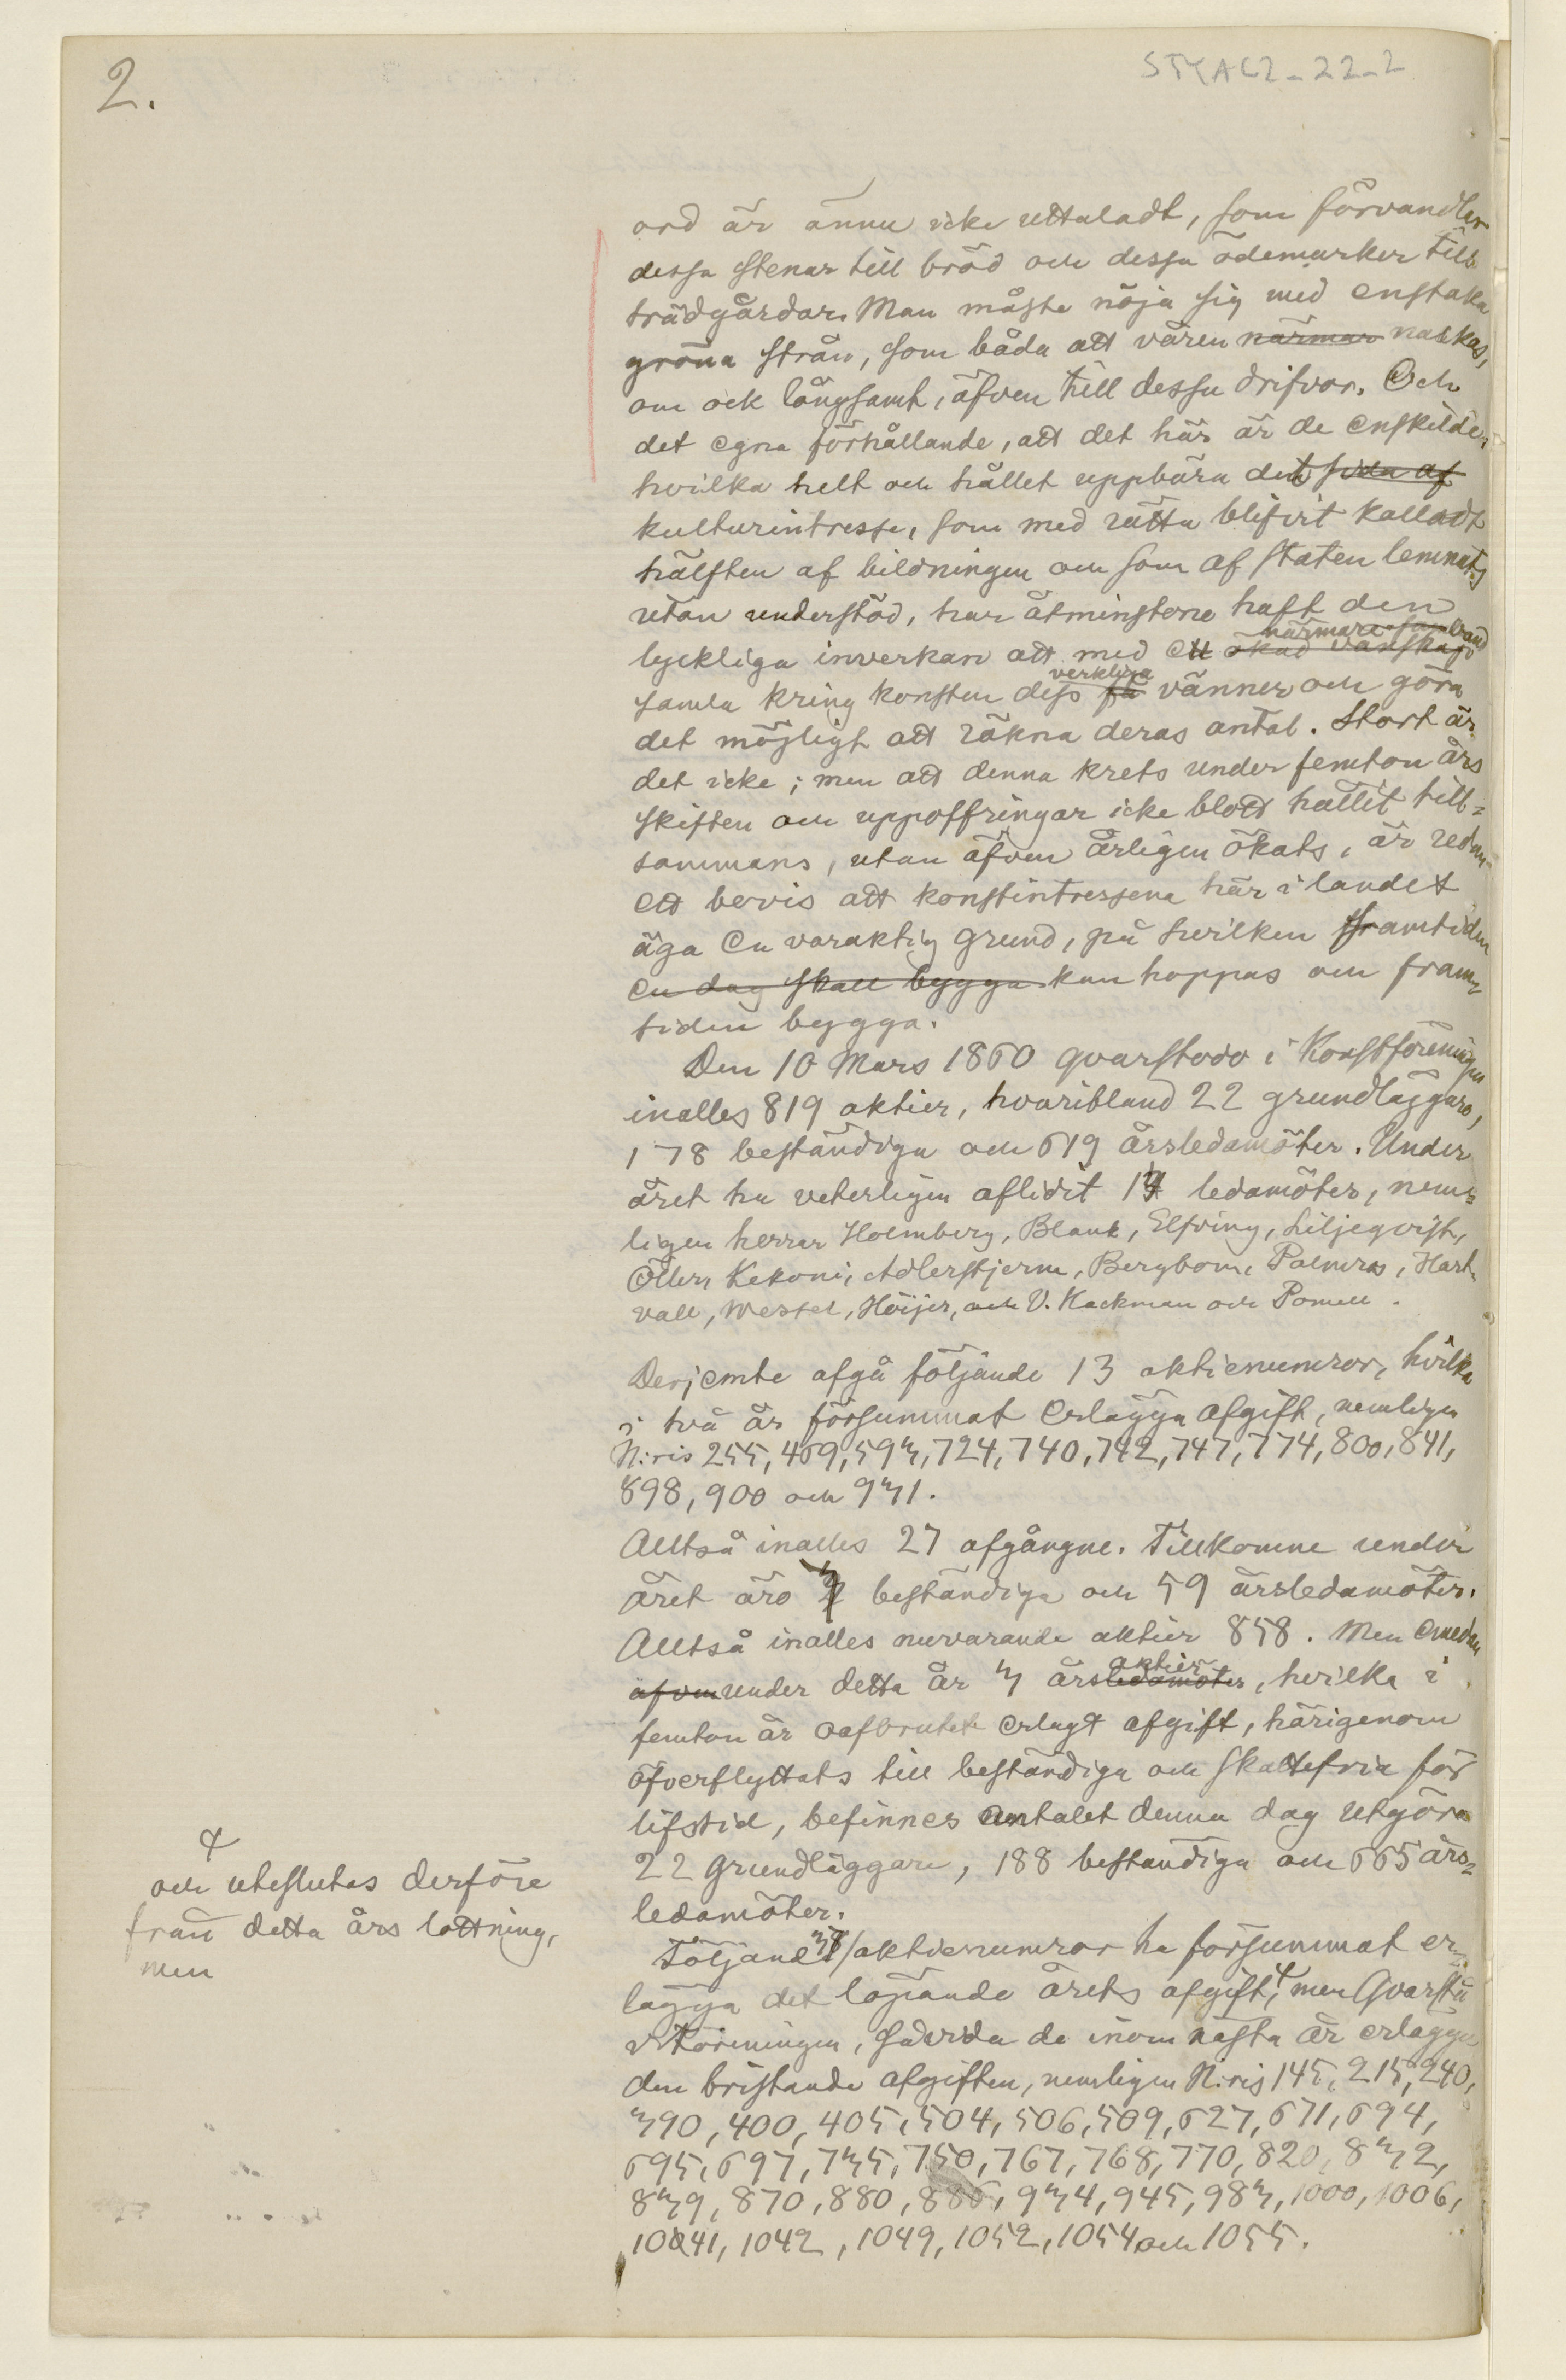 2.
STYAC2_22_2
ord är ännu icke uttaladt, som förvandlar
dessa stenar till bröd och dessa ödemarker till
trädgårdar. Man måste nöja sig med enstaka
gröna strån, som båda att våren närmar nalkas,
om ock långsamt, äfven till dessa drifvor. Och
det egna förhållande, att det här är de enskilde,
hvilka helt och hållet uppbära det sida af
kulturintresse, som med rätta blifvit kalladt
hälften af bildningen och som af staten lemnats
utan understöd, har åtminstone haft den
närmare samband
lyckliga inverkan att med ett ökad vänskap
verkliga
samla kring konsten dess få vänner och göra
det möjligt att räkna deras antal. Stort är
det icke; men att denna krets under femton års
skiften och uppoffringar icke blott hållit till=
sammans, utan äfven årligen ökats, är redan
ett bevis att konstintressena här i landet
äga en varaktig grund, på hvilken framtiden
en dag skall bygga kan hoppas och fram=
tiden bygga.
Den 10 Mars 1860 qvarstodo i Konstföreningen
inalles 819 aktier, hvaribland 22 grundläggare,
178 beständiga och 619 årsledamöter. Under
året ha veterligen aflidit 14 ledamöter, nem=
ligen herrar Holmberg, Blank, Elfving, Liljeqvist,
Öller, Kekoni, Adlerstjerna, Bergbom, Palmros, Hart=
vall, Wessel, Höijer, och V. Hackman och Pomell.
Derjemte afgå följande 13 aktienumror, hvilka
i två år försummat erlägga afgift, nemligen
N:ris 255, 469, 593, 724, 740, 742, 747, 774, 800, 841,
898, 900 och 931.
Alltså inalles 27 afgångne. Tillkomne under
året äro 7 beständiga och 59 årsledamöter.
Alltså inalles nuvarande aktier 858. Men emedan
aktier
äfven under detta år 3 årsledamöter, hvilka i
femton år oafbrutet erlagt afgift, härigenom
öfverflyttats till beständiga och skattefria för
lifstid, befinnes antalet denna dag utgöra
22 grundläggare, 188 beständiga och 665 års=
ledamöter.
Följande 38 aktienumror ha försummat er=
lägga det löpande årets afgift, men qvarstå
i Föreningen, såvida de inom nästa år erlägga
den bristande afgiften, nemligen N:ris 145, 215, 240,
390, 400, 405, 504, 506, 509, 627, 671, 694,
695, 697, 735, 750, 767, 768, 770, 820, 832,
839, 870, 880, 886, 934, 945, 983, 1000, 1006,
1041, 1042, 1049, 1052, 1054 och 1055.
och uteslutas derföre
från detta års lottning,
men